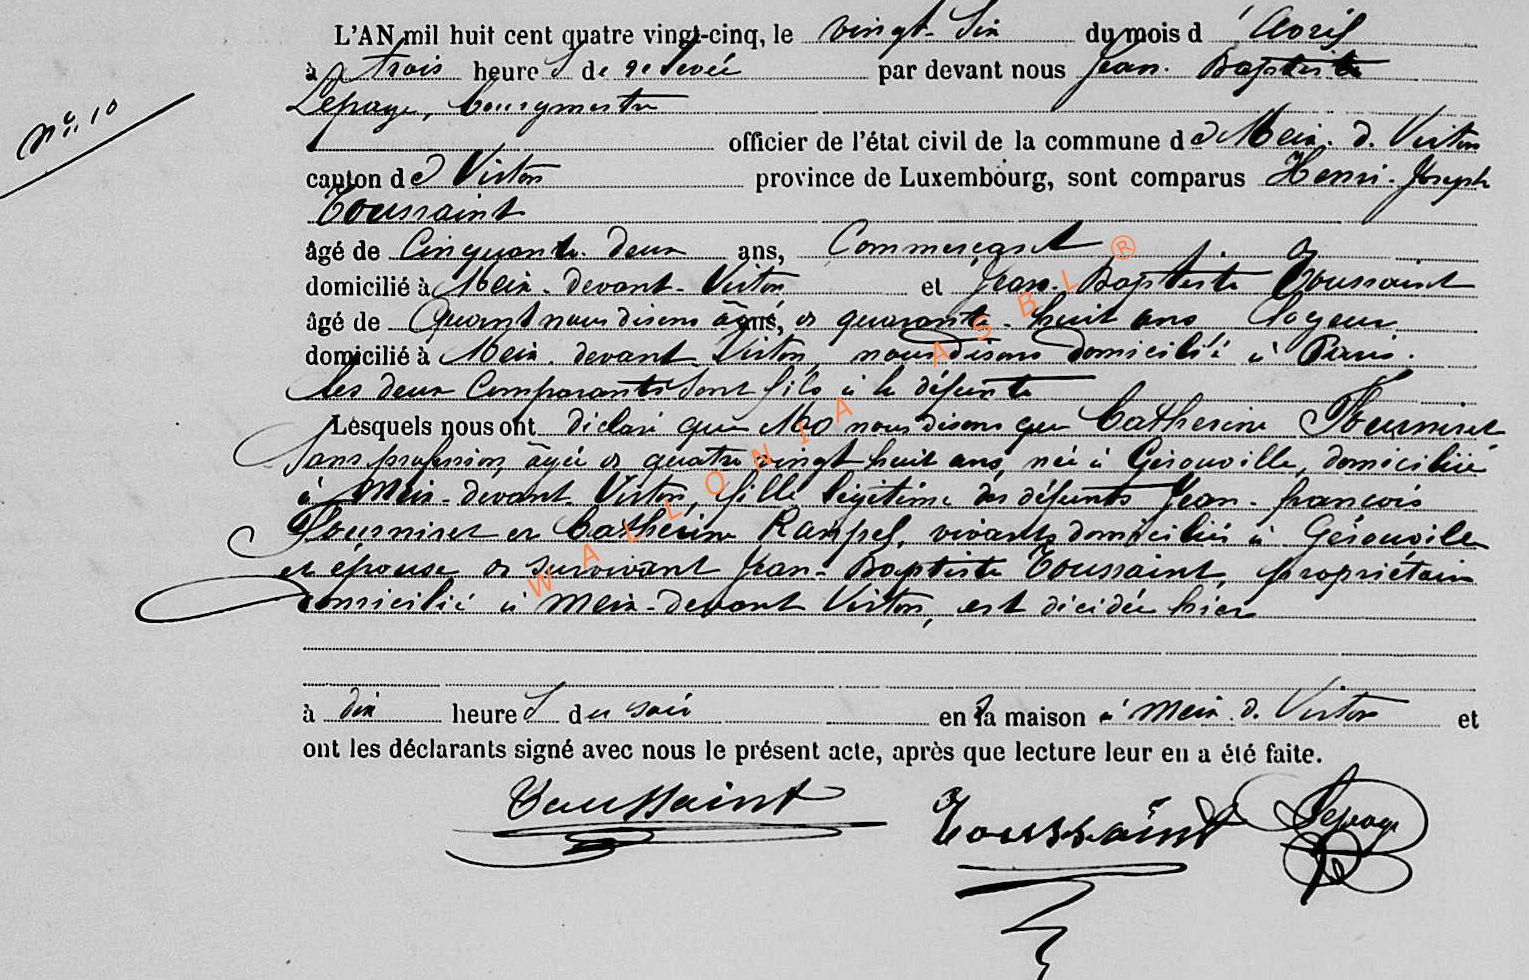 L'AN mil huit cent quatre vingt-cinq, le vingt-six du mois d'Avril
à trois heures de relevée par devant nous Jean-Baptiste
N° 10
Lepage, bourgmestre
officier de l'état civil de la commune de Meix-d.-Virton
canton de Virton province de Luxembourg, sont comparus Henri-Joseph
Toussaint
âgé de Cinquante-deux ans, Commerçant
domicilié à Meix-devant-Virton et Jean-Baptiste Toussaint
âgé de nous disons âgé de quarante-huit ans
domicilié à Meix-devant-Virton, nous disons domicilié à Paris.
les deux comparants sont fils à la défunte
Lesquels nous ont déclaré que nous disons que Catherine Fourniret
sans profession, âgée de quatre vingt huit ans, née à Gérouville, domiciliée
à Meix-devant-Virton, fille légitime des défunts Jean-françois
Fourniret et Catherine vivants domiciliés à Gérouville
et épouse de survivant Jean-Baptiste Toussaint, propriétaire
domicilié à Meix-devant Virton, est décédée hier
à dix heures du soir en sa maison à Meix-d.-Virton et
ont les déclarants signé avec nous le présent acte, après que lecture leur en a été faite.
Toussaint Toussaint Lepage
WALLONIA ASBL ®